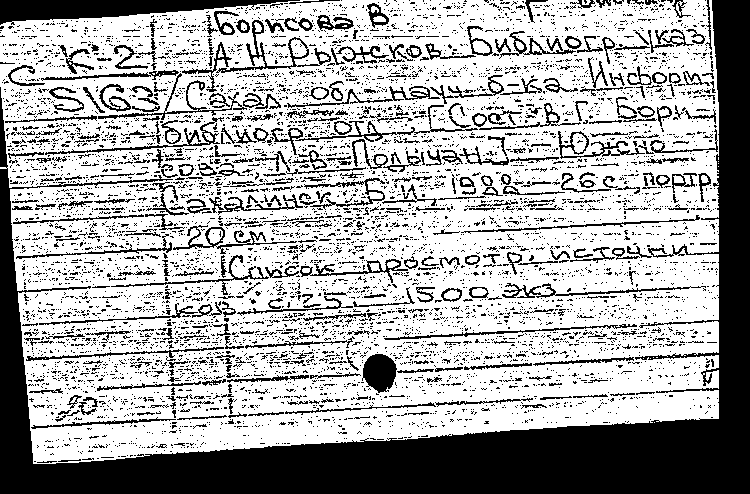 Борисова, В. Г.
К-2 А.Н. Рыжков: Библиогр. указ
S163 / Сахал. обл. науч. б-ка Информ-
библиогр. отд.; [Сост. В.Г. Бори-
сова, Л.В. Подычан.] — Южно-
Сахалинск: Б.И., 1988 — 26 с., портр.
; 20 см.
Список просмотр. источни
ков: с. 25. — 1500 экз.
20